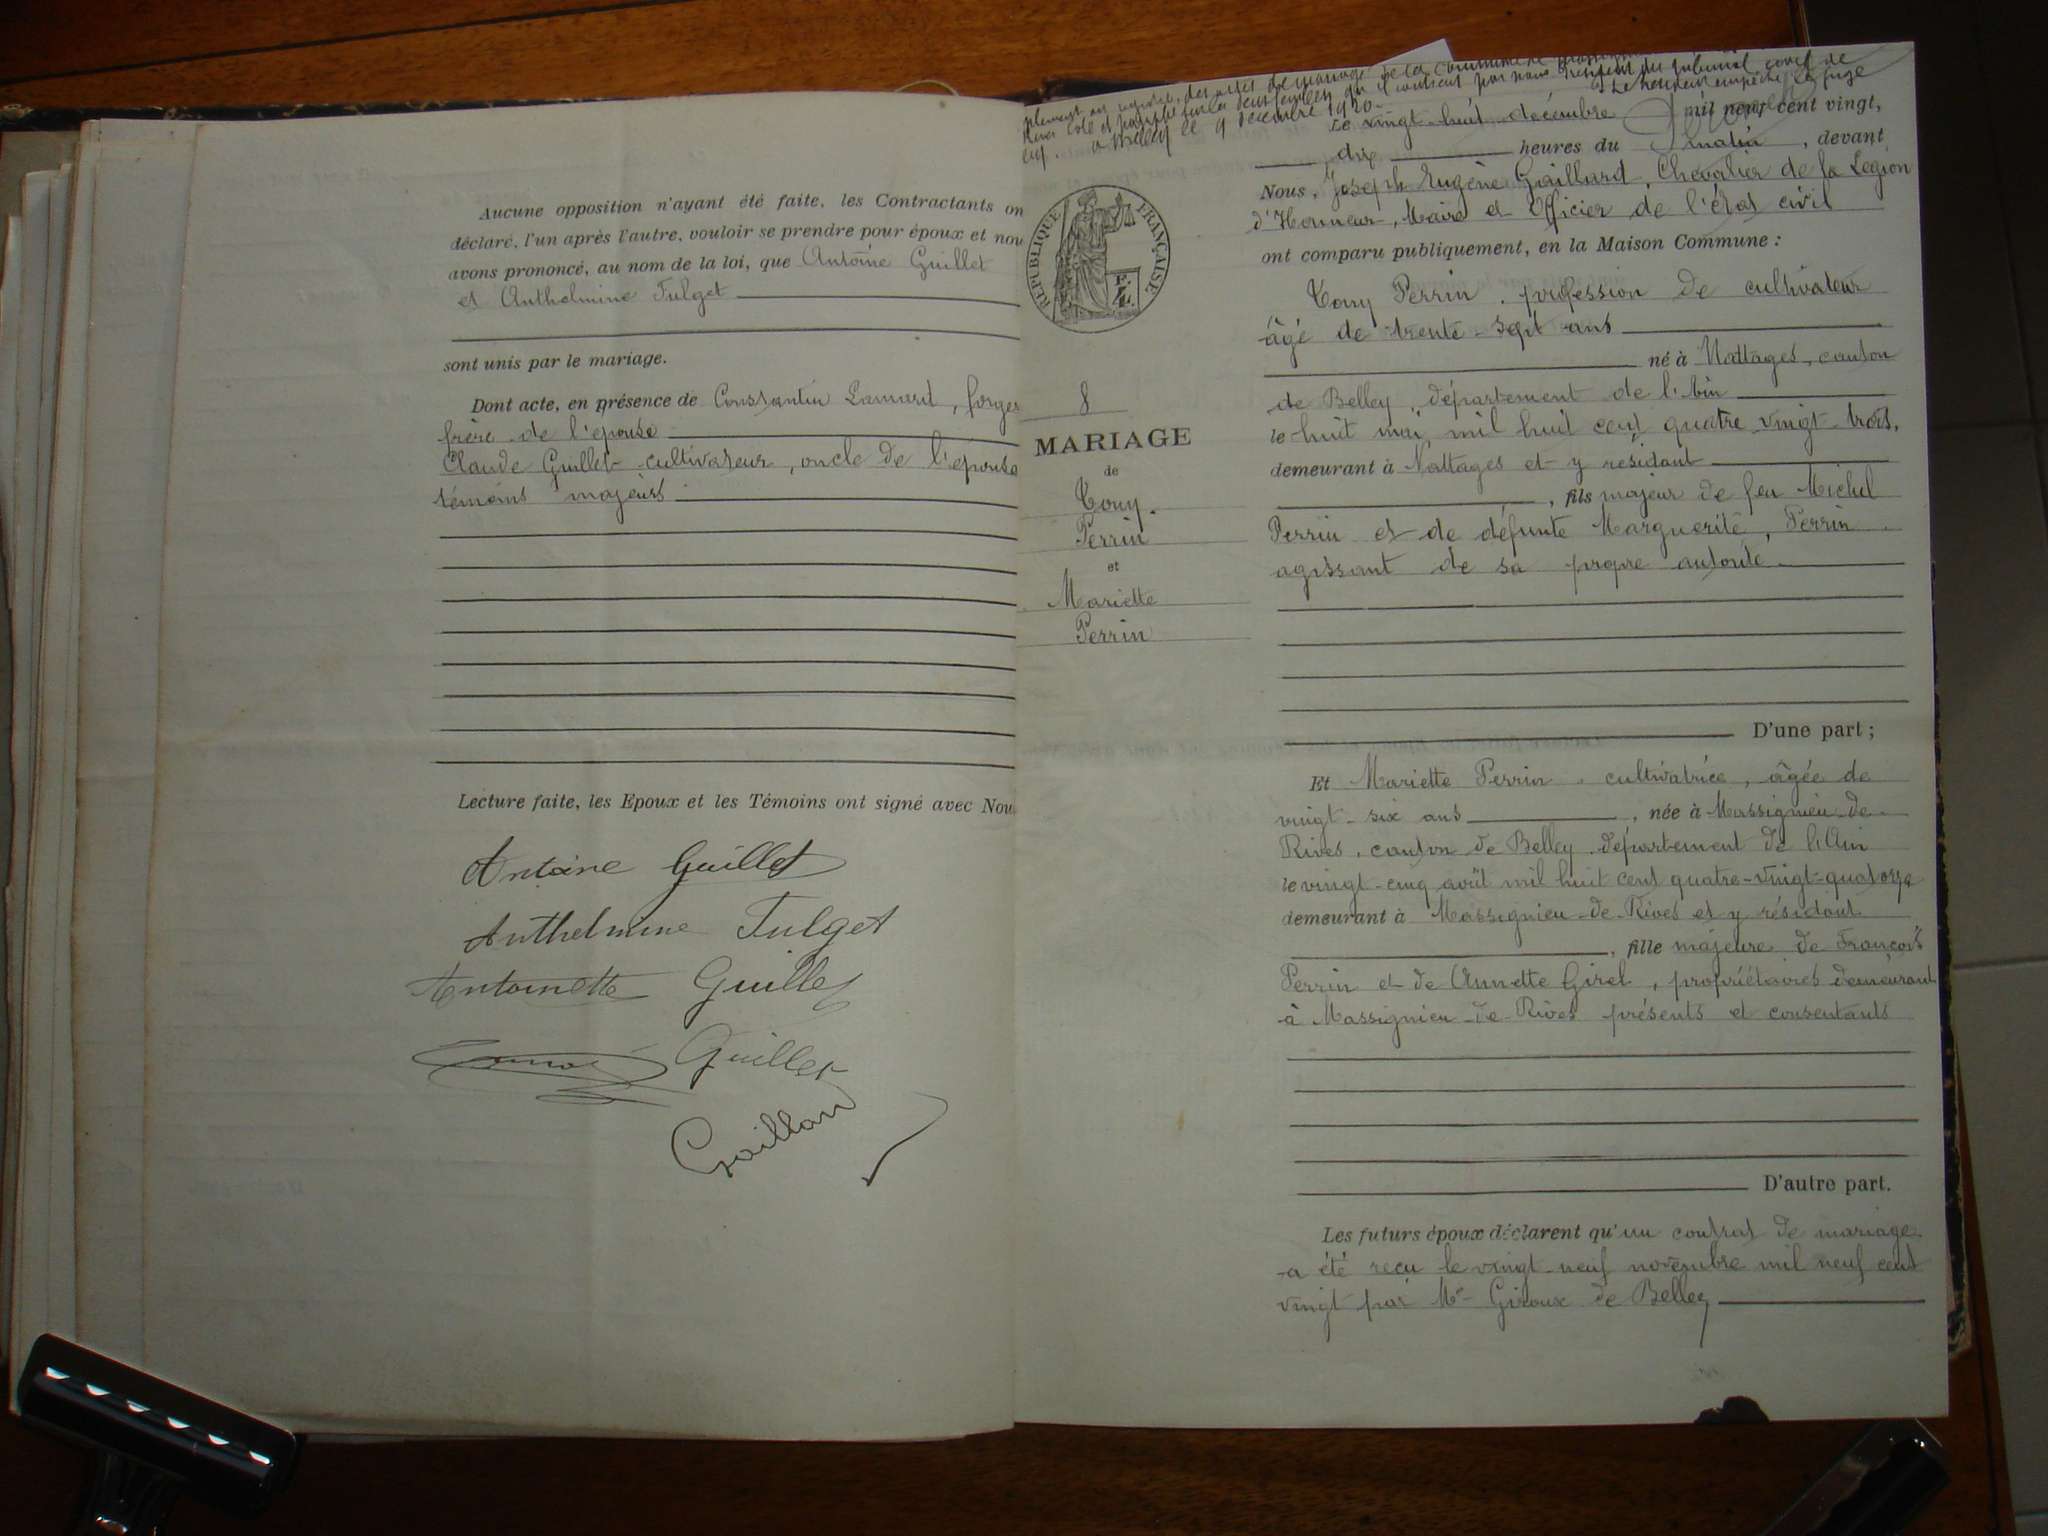 Aucune opposition n'ayant été faite, les Contractants on
déclaré, l'un après l'autre, vouloir se prendre pour époux et nou
avons prononcé, au nom de la loi, que Antoine Guillet
et Anthelmine Fulget
sont unis par le mariage.
Dont acte, en présence de Constantin Lamard, forge
frère de l'épouse
Claude Guillet cultivateur, oncle de l'épouse
témoins majeurs.
Lecture faite, les Epoux et les Témoins ont signé avec Nou
Antoine Guillet
Anthelmine Fulget
Antoinette Guillet
Guillet
Gaillard
des actes de mariage de la commune de
Rives coté et paraphé par nous Président du Tribunal civil de
Belley le 9 décembre 1920.
Le Président empêché Le juge
RÉPUBLIQUE FRANÇAISE
8
MARIAGE
de
Tony
Perrin
et
Mariette
Perrin
Le vingt-huit décembre mil neuf cent vingt,
dix heures du matin, devant
Nous, Joseph Eugène Gaillard, Chevalier de la Légion
d'Honneur, Maire et Officier de l'état civil
ont comparu publiquement, en la Maison Commune :
Tony Perrin, profession de cultivateur
âgé de trente-sept ans
né à Nattages, canton
de Belley, département de l'Ain
le huit mai mil huit cent quatre vingt trois,
demeurant à Nattages et y résidant
, fils majeur de feu Michel
Perrin et de défunte Marguerite Perrin
agissant de sa propre autorité
D'une part ;
Et Mariette Perrin, cultivatrice, âgée de
vingt-six ans, née à Massignieu-de-
Rives, canton de Belley département de l'Ain
le vingt-cinq août mil huit cent quatre-vingt-quatorze
demeurant à Massignieu-de-Rives et y résidant
, fille majeure de François
Perrin et de Annette Girel, propriétaires demeurant
à Massignieu-de-Rives présents et consentants
D'autre part.
Les futurs époux déclarent qu'un contrat de mariage
a été reçu le vingt-neuf novembre mil neuf cent
vingt par Me Giroux de Belley